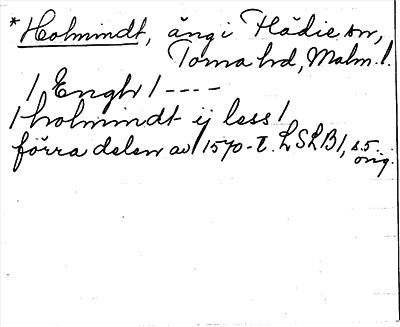 *Holmindt, äng i Flädie sn,
Torna hd, Malm. l.
/ Engh / ----
/ holmindt ij less /
förra delen av 1570-t. LSLB1, s. 5
orig.